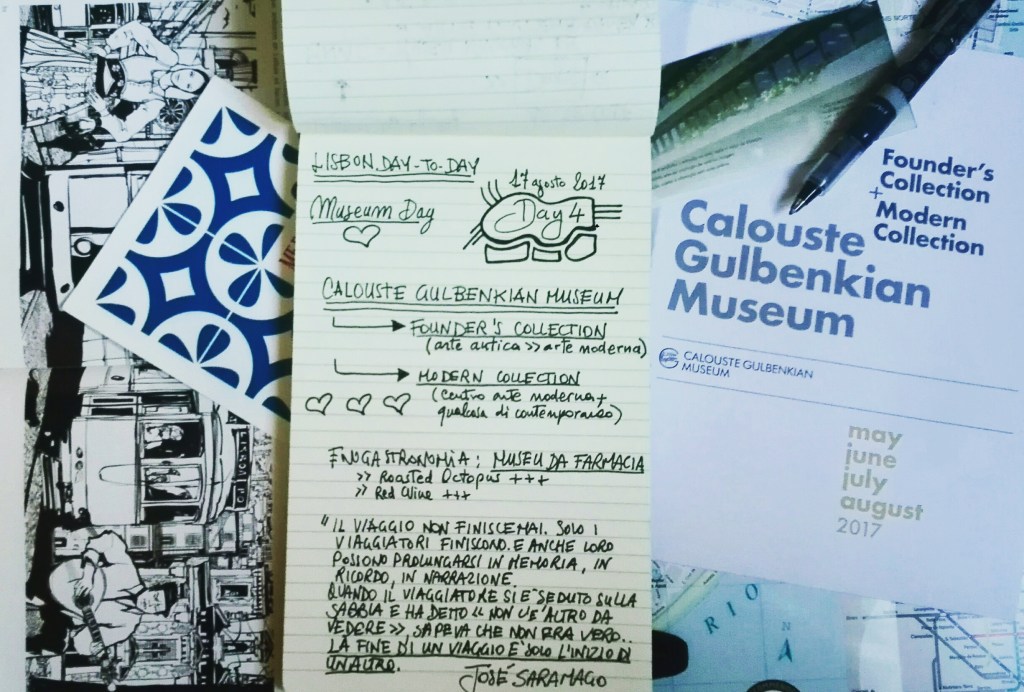 LISBON. DAY-TO-DAY
17 agosto 2017
Museum Day
Day 4
CALOUSTE GULBENKIAN MUSEUM
FOUNDER'S COLLECTION
(arte antica >> arte moderna)
MODERN COLLECTION
(centro arte moderna +
qualcosa di contemporaneo)
ENOGASTRONOMIA: MUSEU DA FARMACIA
>> Roasted Octopus +++
>> Red Wine +++
"IL VIAGGIO NON FINISCE MAI. SOLO I
VIAGGIATORI FINISCONO. E ANCHE LORO
POSSONO PROLUNGARSI IN MEMORIA, IN
RICORDO, IN NARRAZIONE.
QUANDO IL VIAGGIATORE SI E' SEDUTO SULLA
SABBIA E HA DETTO << NON C'E' ALTRO DA
VEDERE >>, SAPEVA CHE NON ERA VERO..
LA FINE DI UN VIAGGIO E' SOLO L'INIZIO DI
UN ALTRO.
JOSÉ SARAMAGO
Founder's
Collection
+
Modern
Collection
Calouste
Gulbenkian
Museum
CALOUSTE GULBENKIAN
MUSEUM
may
june
july
august
2017